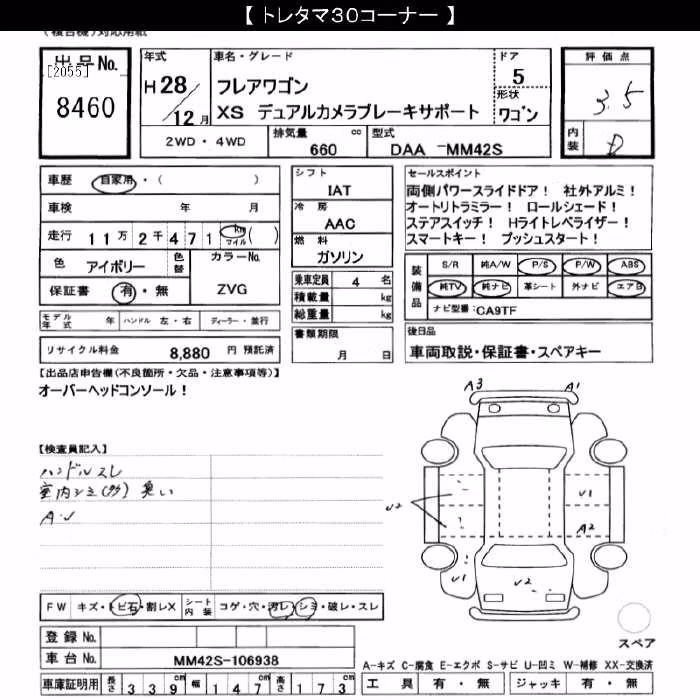 【 トレタマ30コーナー 】
(複合機)対応用紙
出品No.
[2055]
8460
年式
H 28 / 12 月
車名・グレード
フレアワゴン
XS デュアルカメラブレーキサポート
ドア
5
形状
ワゴン
評価点
3.5
内装
D
2WD・4WD
排気量 cc
660
型式
DAA -MM42S
車歴 自家用・( )
車検 年 月
走行 11万 2千 471 km マイル ( )
色 アイボリー 色替
カラーNo.
ZVG
保証書 有・無
モデル年式 年 ハンドル 左・右 ディーラー・並行
リサイクル料金 8,880 円 預託済
シフト
IAT
冷房
AAC
燃料
ガソリン
乗車定員 4 名
積載量 kg
総重量 kg
書類期限
月 日
セールスポイント
両側パワースライドドア! 社外アルミ!
オートリトラミラー! ロールシェード!
ステアスイッチ! Hライトレベライザー!
スマートキー! プッシュスタート!
装備品
S/R 純A/W P/S P/W ABS
純TV 純ナビ 革シート 外ナビ エアB
ナビ型番:CA9TF
後日品
車両取説・保証書・スペアキー
【出品店申告欄(不良箇所・欠品・注意事項等)】
オーバーヘッドコンソール!
【検査員記入】
ハンドルスレ
室内シミ(多) 臭い
A・U
A3
A1
U2
U1
A2
U1
U2
スペア
FW キズ・トビ石・割レX
シート内装 コゲ・穴・汚レ・シミ・破レ・スレ
登録No.
車台No. MM42S-106938
車庫証明用 長さ 339 cm 幅 147 cm 高さ 173 cm
A-キズ C-腐食 E-エクボ S-サビ U-凹ミ W-補修 XX-交換済
工具 有・無 ジャッキ 有・無